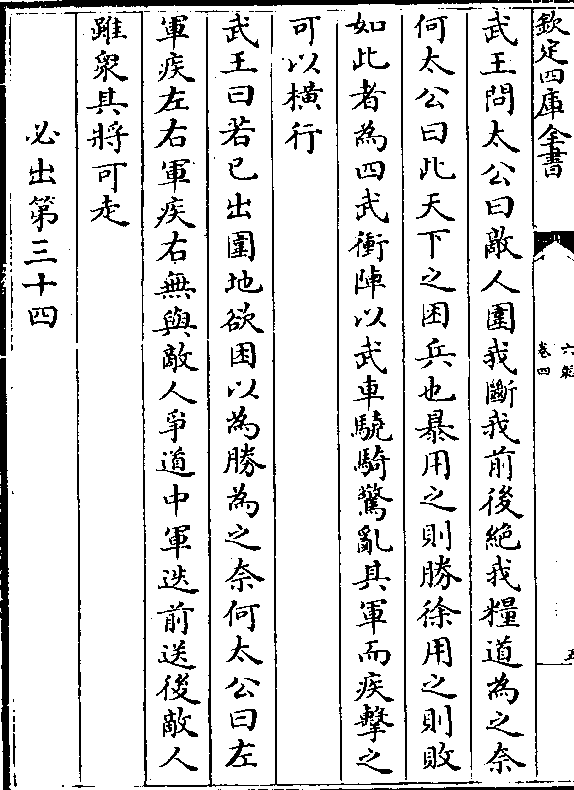 欽定四庫全書
六韜
卷四
武王問太公曰敵人圍我斷我前後絶我糧道為之奈
何太公曰此天下之困兵也暴用之則勝徐用之則敗
如此者為四武衝陣以武車驍騎驚亂其軍而疾擊之
可以橫行
武王曰若已出圍地欲困以為勝為之奈何太公曰左
軍疾左右軍疾右無與敵人爭道中軍迭前送後敵人
雖衆其將可走
必出第三十四